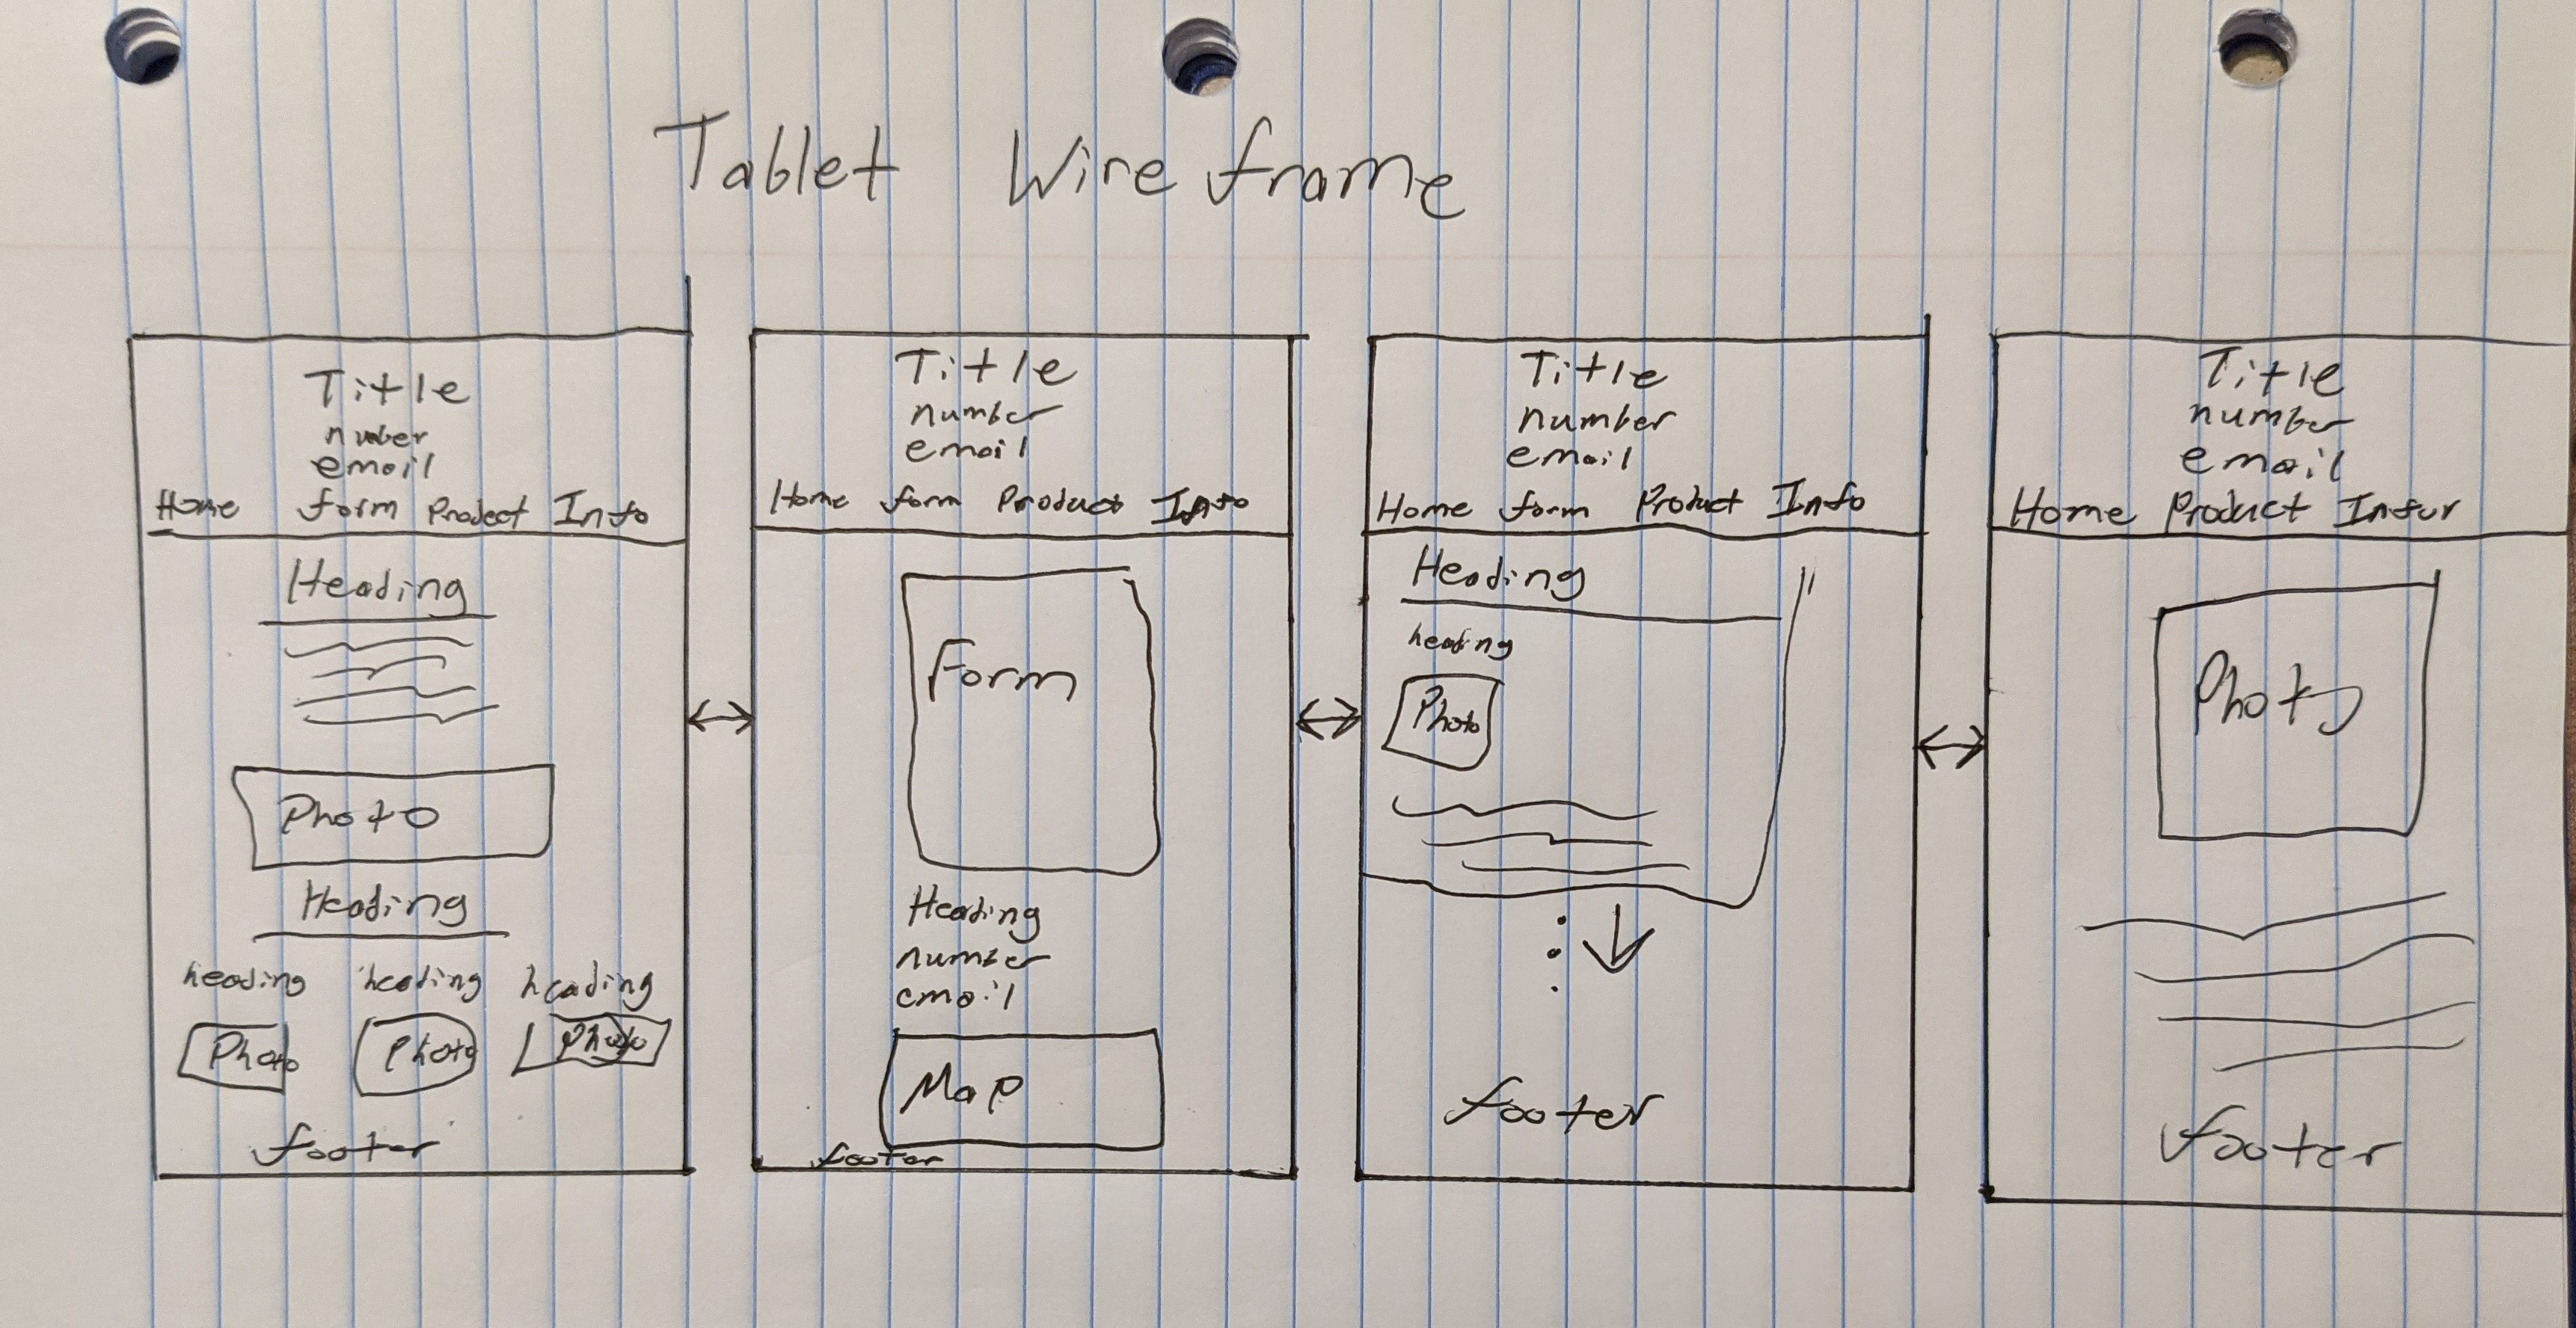 Tablet Wireframe
Title
number
email
Home form Product Info
Heading
Photo
Heading
heading heading heading
Photo Photo Photo
footer
Title
number
email
Home form Product Info
Form
Heading
number
email
Map
footer
Title
number
email
Home form Product Info
Heading
heading
Photo
footer
Title
number
email
Home Product Infor
Photo
footer